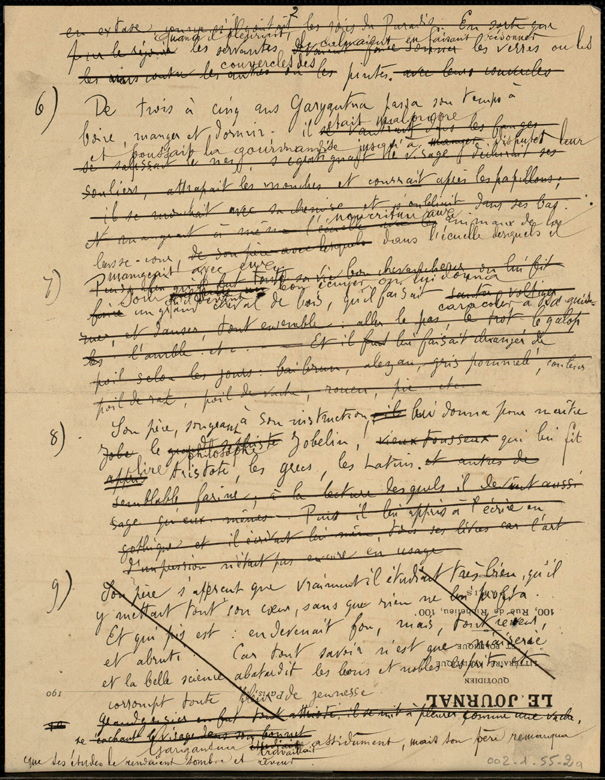 2
en extase comme s'il goûtait les joies de Paradis. En sorte que
les servantes, en faisant résonner les verres ou les
couvercles des
les pintes. avec leurs couvercles
6) De trois à cinq ans Gargantua passa son temps à
boire, manger et dormir. il était malpropre
se vautrait dans les fanges
et poussait la gourmandise jusqu'à manger disputer leur
se salissait le nez, s'égratignait le visage, éculait ses
souliers, attrapait les mouches et courrait après les papillons;
il se mouchait avec sa chemise et
nourriture aux animaux de la
basse-cour, de son père avec lesquels dans l'écuelle desquels il
mangeait avec eux.
7) Puis
Pour devenir bon écuyer on lui donna
faire un grand cheval de bois, qu'il faisait sauter, voltiger
caracoler à sa guise
ruer, et danser, tout ensemble. aller le pas, le trot le galop
l'amble, etc Et il lui faisait changer de
poil selon les jours: bai brun, alezan, gris pommelé, couleur
poil de rat, poil de vache, rouen, pie, etc
8) Son père, songeant à son instruction, lui donna pour maître
Jobe le philosophe Jobelin, vieux tousseux qui lui fit
lire Aristote, les Grecs, les Latins. et autres de
semblable farine, à la lecture desquels il devint aussi
sage qu'eux mêmes. Puis il lui apprit à l'écrire en
gothique et il écrivait lui même, tous ses livres car l'art
d'impression n'était pas encore en usage
9) Son père s'aperçut que vraiment il étudiait très bien, qu'il
y mettait tout son cœur, sans que rien ne lui profita.
Et qui pis est: en devenait fou, niais, tout rêveur,
et abruti. Car tout savoir n'est que niaiserie
et la belle science abatardit les bons et nobles esprits et
corrompt toute fleur de jeunesse
100, Rue de Richelieu, 100
QUOTIDIEN
LE JOURNAL
190
il se mit à pleurer comme une vache,
se cachant le visage dans son bonnet
Gargantua étudiait travaillait assidument, mais son père remarqua
que ses études le rendaient sombre et rêveur
002-1-55-2a